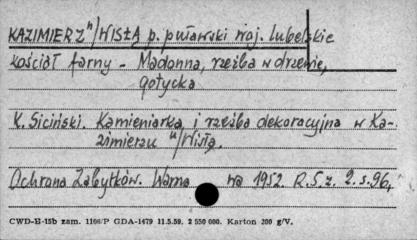 KAZIMIERZ n/WISŁĄ p. puławski woj. lubelskie
kościół farny - Madonna, rzeźba w drzewie,
gotycka
K. Siciński. Kamieniarka i rzeźba dekoracyjna w Ka-
zimierzu n/Wisłą.
Ochrona Zabytków. Warna wa 1952 R.5.z. 2.s.96,
CWD-H-15b zam. 1166/P GDA-1479 11.5.59. 2 550 000. Karton 200 g/V.